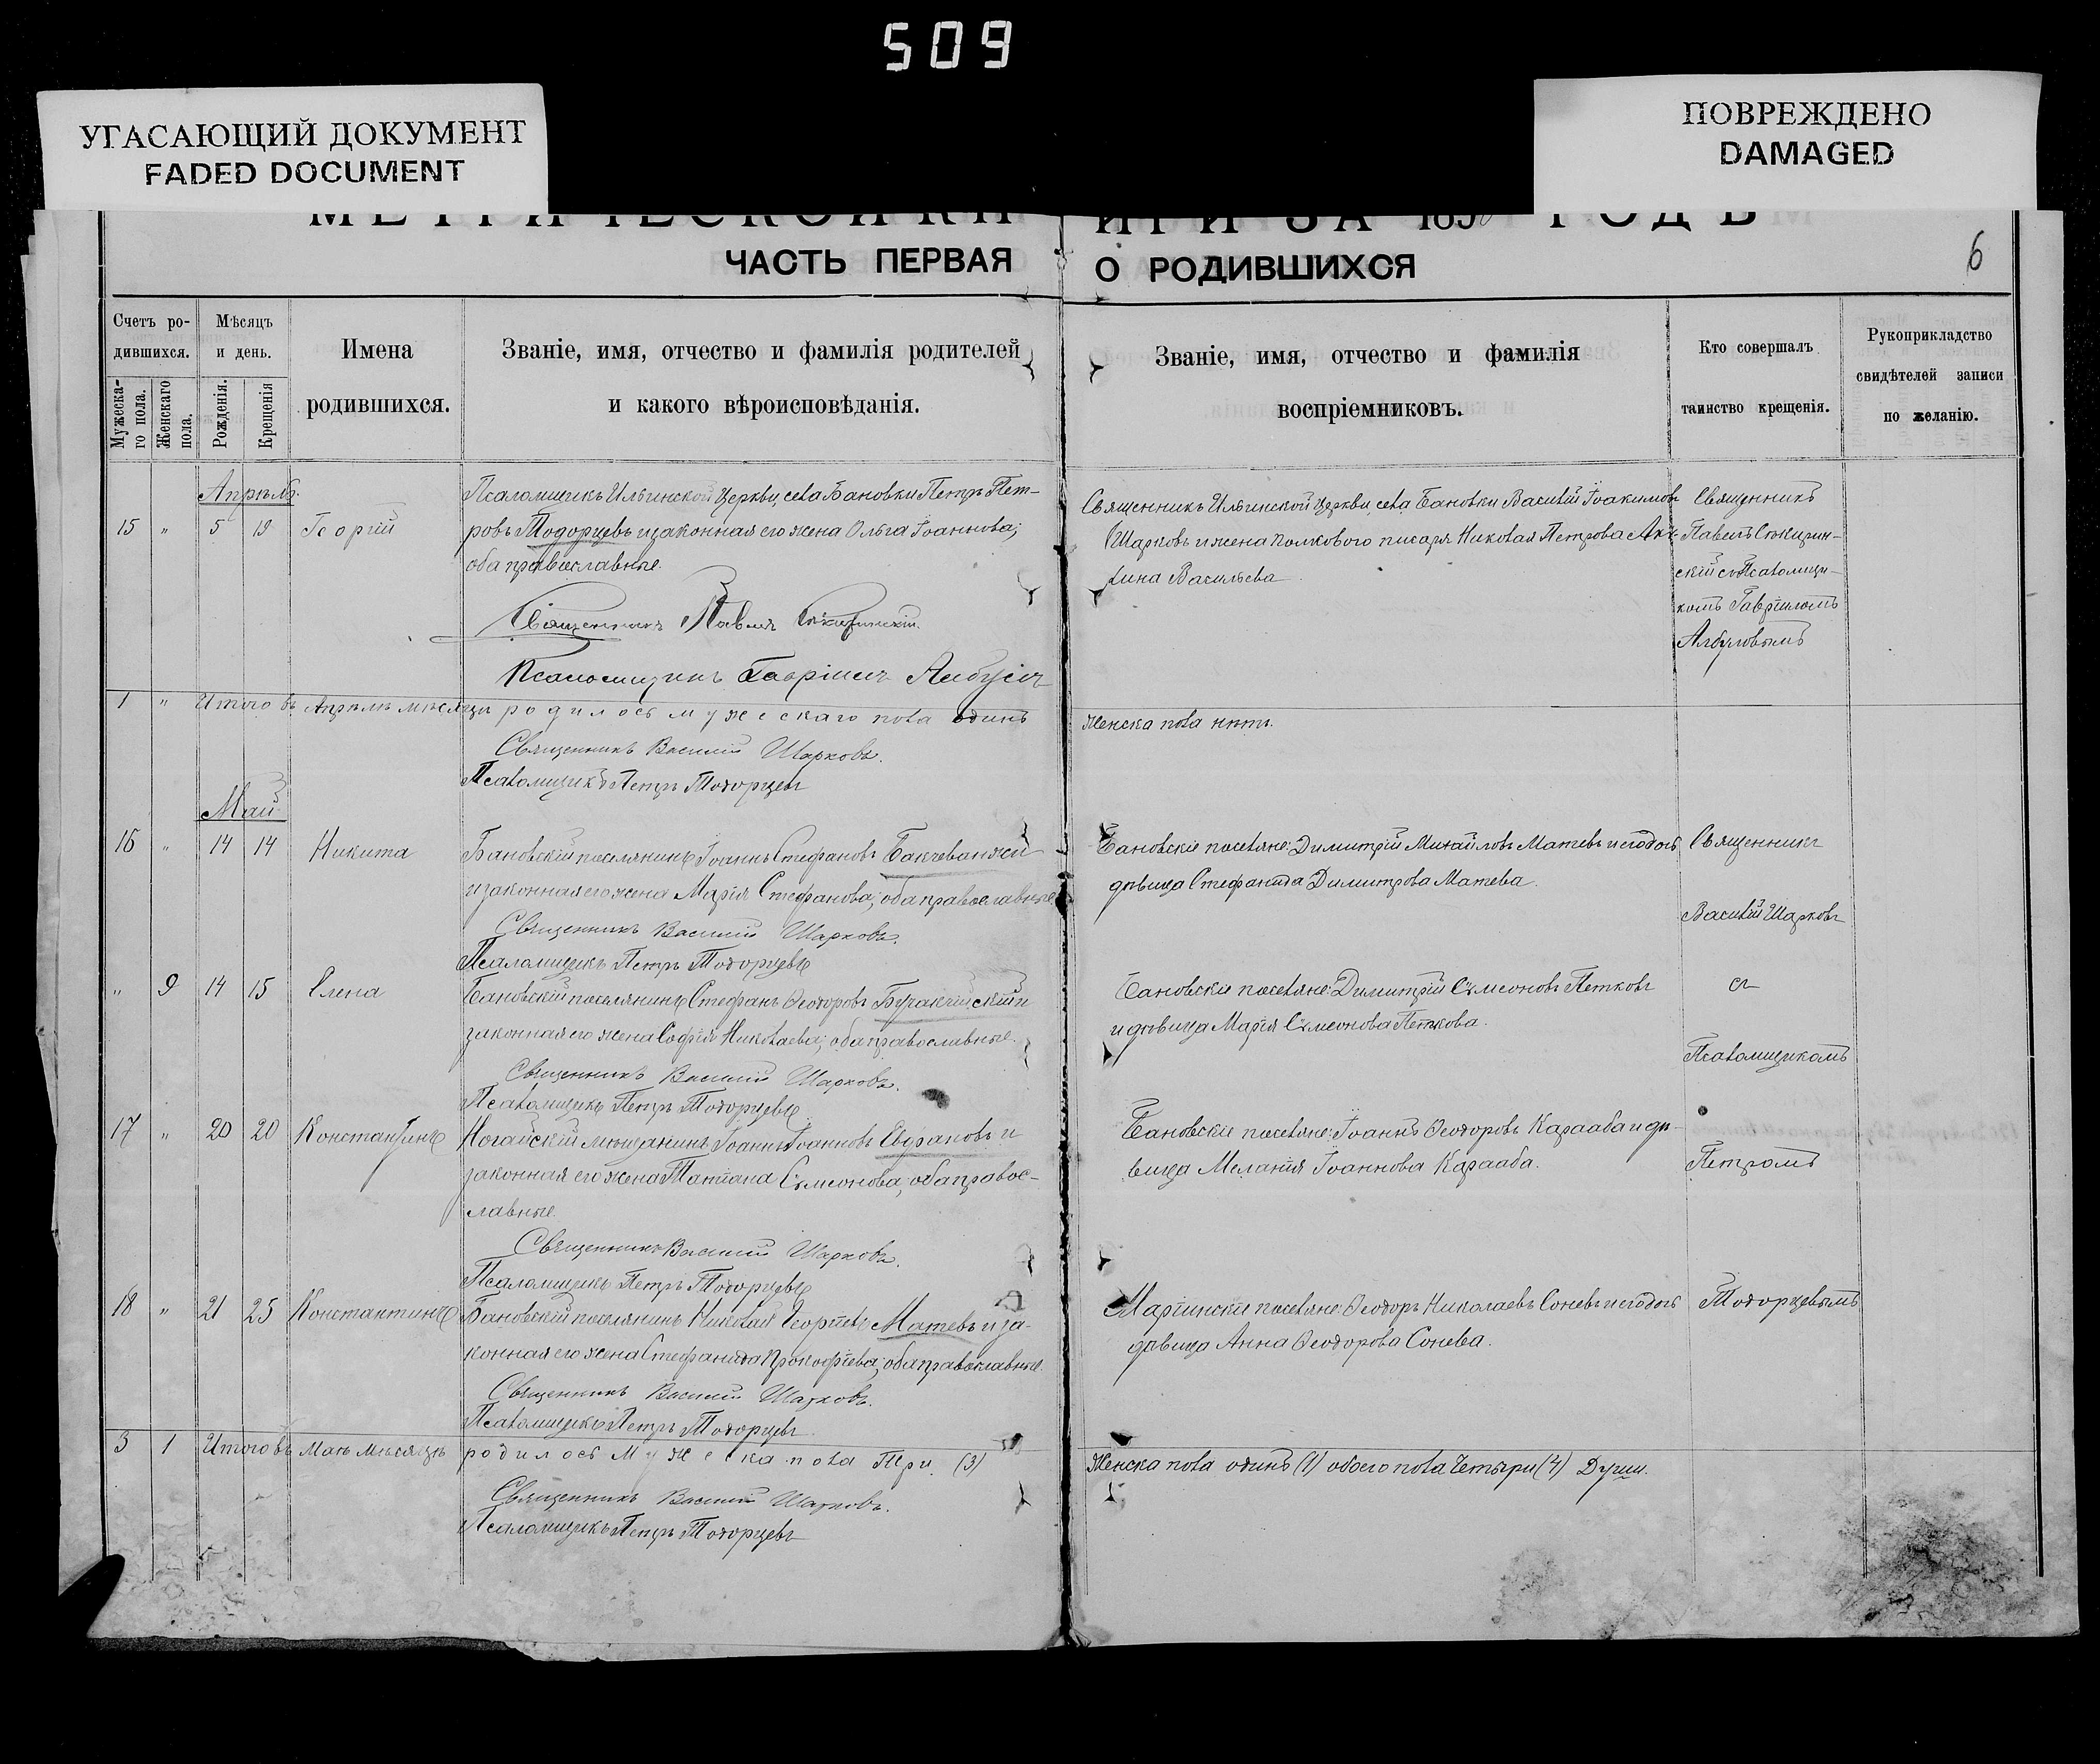 509
УГАСАЮЩИЙ ДОКУМЕНТ
FADED DOCUMENT
ПОВРЕЖДЕНО
DAMAGED
МЕТРИЧЕСКОЙ КНИГИ ЗА ГОДЪ
ЧАСТЬ ПЕРВАЯ О РОДИВШИХСЯ
6
Счетъ ро-
дившихся.
Мужеска-
го пола.
Женскаго
пола.
Мѣсяцъ
и день.
Рожденія.
Крещенія
Имена
родившихся.
Званіе, имя, отчество и фамилія родителей
и какого вѣроисповѣданія.
Званіе, имя, отчество и фамилія
воспріемниковъ.
Кто совершалъ
таинство крещенія.
Рукоприкладство
свидѣтелей записи
по желанію.
Апрѣль
15 " 5 19 Георгій
Псаломщикъ Ильинской Церкви, села Бановки Петръ Пет-
ровъ Тодорцевъ и законная его жена Ольга Іоаннова;
оба православные.
Священникъ Павелъ
Псаломщикъ Гавріилъ
Священникъ Ильинской Церкви села Бановки Василій Іоакимовъ
Шарковъ и жена полкового писаря Николая Петрова
лина Васильева
Священникъ
Павелъ
скій съ Псаломщи-
комъ Гавріиломъ
1 " Итого въ Апрѣлѣ мѣсяцѣ родилось мужескаго пола одинъ
Женска пола нѣтъ.
Священникъ Василій Шарковъ.
Псаломщикъ Петръ Тодорцевъ
Май
16 " 14 14 Никита
Бановскій поселянинъ Іоаннъ Стефановъ Бакчеванжи
и законная его жена Марія Стефанова; оба православные
Священникъ Василій Шарковъ.
Псаломщикъ Петръ Тодорцевъ
Бановскіе поселяне: Димитрій Михайловъ Матевъ и его дочь
дѣвица Стефанида Димитрова Матева.
Священникъ
Василій Шарковъ
" 9 14 15 Елена
Бановскій поселянинъ Стефанъ Ѳеодоровъ и
законная его жена Софія Николаева; оба православные.
Священникъ Василій Шарковъ.
Псаломщикъ Петръ Тодорцевъ
Бановскіе поселяне: Димитрій Сѵмеоновъ Петковъ
и дѣвица Марія Сѵмеонова Петкова.
съ
Псаломщикомъ
17 " 20 20 Константинъ
Ногайскій мѣщанинъ Іоаннъ Іоанновъ и
законная его жена Татіана Сѵмеонова; оба правос-
лавные.
Священникъ Василій Шарковъ.
Псаломщикъ Петръ Тодорцевъ
Бановскіе поселяне: Іоаннъ Ѳеодоровъ Карааба и дѣ-
вица Меланія Іоаннова Карааба.
Петромъ
18 " 21 25 Константинъ
Бановскій поселянинъ Николай Георгіевъ Матевъ и за-
конная его жена Стефанида Прокофіева; оба православные.
Священникъ Василій Шарковъ.
Псаломщикъ Петръ Тодорцевъ
Маріинскіе поселяне: Ѳеодоръ Николаевъ Соневъ и его дочь
дѣвица Анна Ѳеодорова Сонева.
Тодорцевымъ
3 1 Итого въ Маѣ мѣсяцѣ родилось мужеска пола три (3)
Женска пола одинъ (1) обоего пола Четыри (4) Души.
Священникъ Василій Шарковъ.
Псаломщикъ Петръ Тодорцевъ